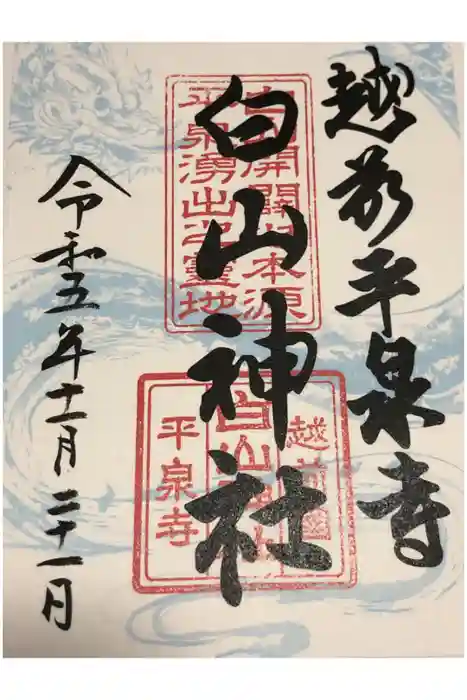 越前平泉寺
白山神社
令和五年十一月二十一日
開闢
本源
平泉湧出之靈地
越前國
白山神社
平泉寺